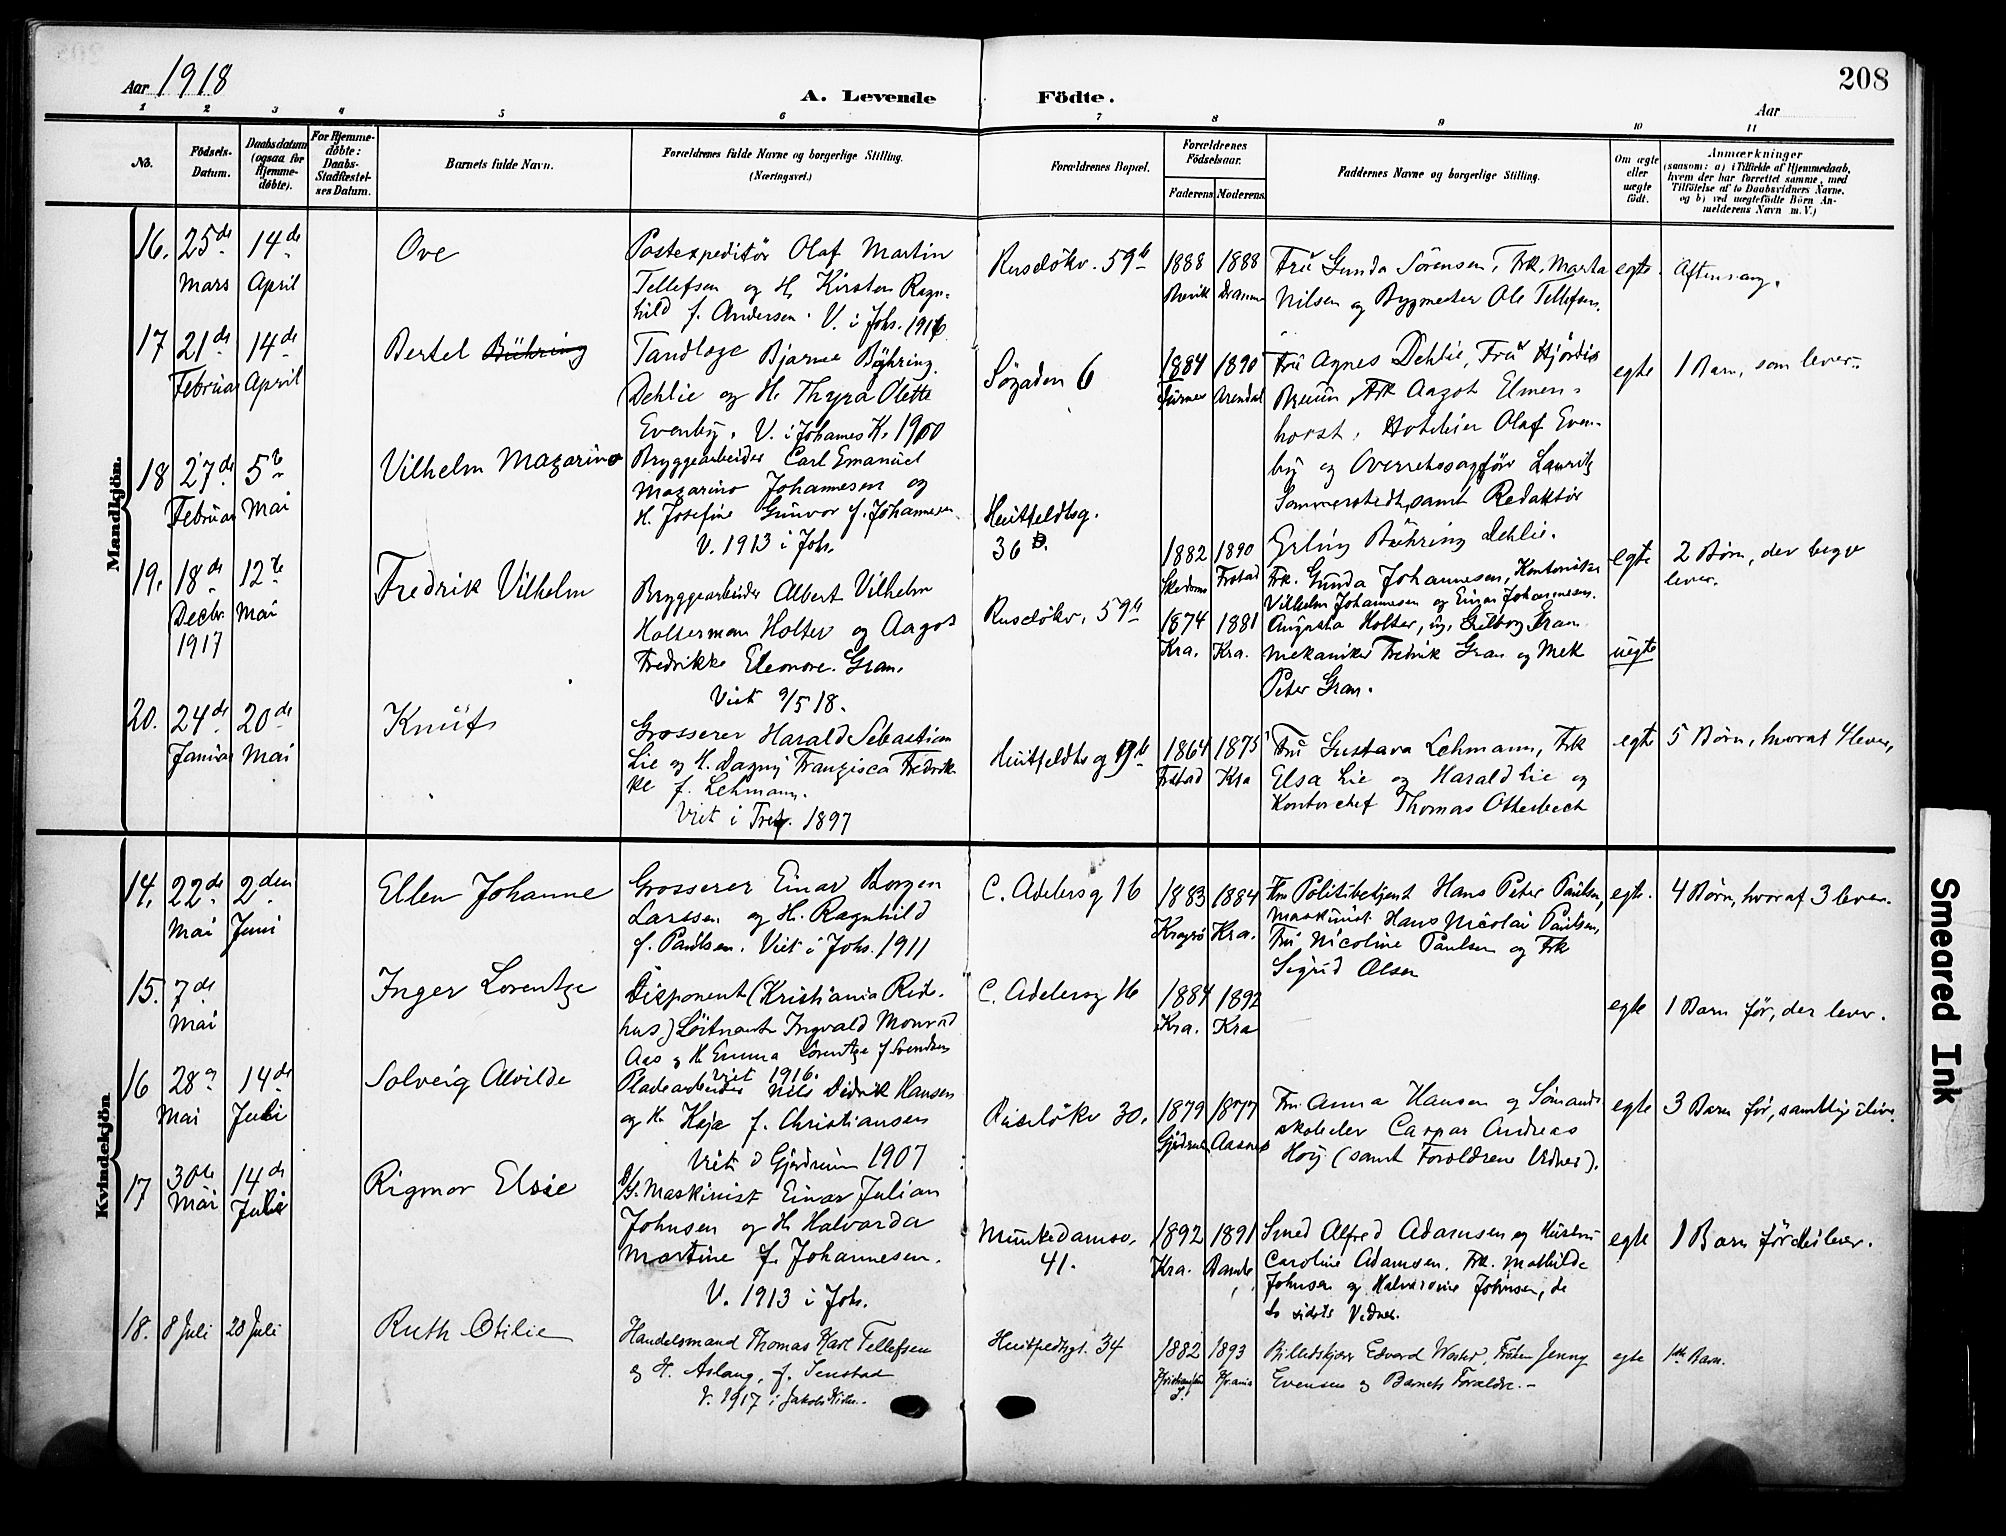 208
Aar 1918
A. Levende Födte.
Aar
1 2 3 4 5 6 7 8 9 10 11
No.
Födsels-Datum.
Daabsdatum (ogsaa for Hjemme-døbte).
For Hjemme-døbte: Daabs-Stadfæstel-ses Datum.
Barnets fulde Navn.
Forældrenes fulde Navne og borgerlige Stilling.
(Næringsvei.)
Forældrenes Bopæl.
Forældrenes Födselsaar.
Faderens Moderens
Faddernes Navne og borgerlige Stilling.
Om ægte eller uægte födt.
Anmærkninger
(saasom: a) i Tilfælde af Hjemmedaab,
hvem der har forrettet samme, med
Tilföielse af to Daabsvidners Navne,
og b) ved uægtefödte Börn An-
melderens Navn m. V.)
Mandkjön.
16. 25de Mars 14de April
Ove
Postexpeditör Olaf Martin
Tellefsen og H. Kirsten Ragn-
hild f. Andersen. V. i Johs. 1916
Ruselökv. 59b
1888 1888
Fru Gunda Sörensen, Frk. Marta
Nilsen og Bygmester Ole Tellefsen.
egte.
Aftensang.
17 21de Februar 14de April
Bertel Bühring
Tandlæge Bjarne Bühring
Dehlie og H. Thyra Olette
Evenby. V. i Johannes K. 1900
Sögaden 6
1884 1890
Arendal
Fru Agnes Dehlie, Fru Hjördis
Bruun, Frk Aagot Elmen-
horst, Hotelier Olaf Even-
by og Overretssagförer Lauritz
Sommerstedt, samt Redaktör
Erling Bühring Dehlie.
egte
1 Barn, som lever.
18 27de Februar 5te Mai
Vilhelm Mazarino
Bryggearbeider Carl Emanuel
Mazarino Johannesen og
H. Josefine Gunvor f. Johannesen
V. 1913 i Johs.
Huitfeldtsg.
36 B.
1882 1890
Frstad
Frk. Gunda Johannesen, Kontorist
Vilhelm Johannesen og Einar Johannesen.
egte
2 Börn, der begge
lever.
19. 18de Decbr. 1917 12te Mai
Fredrik Vilhelm
Bryggearbeider Albert Vilhelm
Holterman Holter og Aagot
Fredrikke Eleonore Gran.
Viet 9/5 18.
Ruselökv. 59a
1874 1881
Kra. Kra.
Augusta Holter, Gran
Mekaniker Fredrik Gran og Mek
Peter Gran.
uegte
20. 24de Januar 20de Mai
Knut
Grosserer Harald Sebastian
Lie og H. Dagny Franzisca Fredrik-
ke f. Lehmann.
Viet i Tref. 1897
Huitfeldtsg 9b
1864 1875
Frstad Kra
Fru Gustava Lehmann, Frk
Elsa Lie og Harald Lie og
Kontorchef Thomas Otterbech
egte
5 Börn, hvoraf 4 lever,
Kvindekjön
14. 22de Mai 2den Juni
Ellen Johanne
Grosserer Einar Borgen
Larssen og H. Ragnhild
f. Paulsen. Viet i Johs. 1911
C. Adelersg 16
1883 1884
Kragerö Kra.
Fru Politibetjent Hans Peter Paulsen,
Maskinist Hans Nicolai Paulsen,
Fru Nicoline Paulsen og Frk
Sigrid Olsen
egte.
4 Börn, hvoraf 3 lever.
15. 7de Mai
Inger Lorentze
Disponent (Kristiania Ride-
hus) Löitnant Ingvald Monrad
Aas og H. Emma Lorentze f Svendsen
Viet 1916.
C. Adelersg 16
1884 1892
Kra. Kra
egte
1 Barn för, der lever.
16 28de Mai 14de Juli
Solveig Alvilde
Pladearbeider Nils Didrik Hansen
og H. Kaja f. Christiansen
Viet i Gjerdrum 1907
Ruselökv 30.
1879 1877
Gjerdrum Aasnes
Fru Anna Hansen og Sömands
skoleelev Caspar Andreas
Höy (samt Forældrene Vidner).
egte
3 Barn för, samtlige ilive
17 30te Mai 14de Juli
Rigmor Elsie
Maskinist Einar Julian
Johnsen og H. Halvarda
Martine f. Johannesen.
V. 1913 i Johs.
Munkedamsv.
41.
1892 1891
Kra. Bamle
Smed Alfred Adamsen og Hustru
Caroline Adamsen. Frk. Mathilde
Johnsen og Halvardine Johnsen, de
to sidste Vidner.
egte
1 Barn för der lever.
18. 8 Juli 28 Juli
Ruth Otilie
Handelsmand Thomas Karl Tellefsen
og H. Aslaug, f. Senstad
V. 1917 i Jakobs Kirke.
Huitfeldtsgt. 34
1882 1893
Kristianssund Krania
Billedskjærer Edvard Wester, Fröken Jenny
Evensen og Barnets Forældre.-
egte
1ste Barn.
Smeared Ink